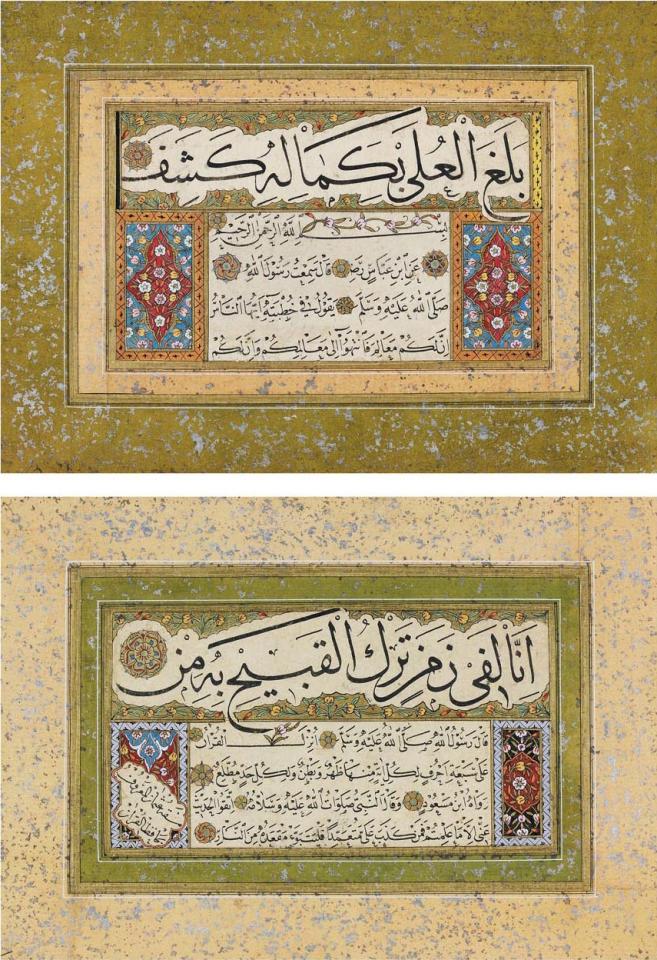 بَلَغَ الْعُلَى بِكَمَالِهِ كَشَفَ
بِسْمِ اللهِ الرَّحْمٰنِ الرَّحِيمِ
عَنِ ابْنِ عَبَّاسٍ رَضِ قَالَ سَمِعْتُ رَسُولَ اللهِ
صَلَّى اللهُ عَلَيْهِ وَسَلَّمَ يَقُولُ فِى خُطْبَتِهِ اَيُّهَا النَّاسُ
اِنَّ لَكُمْ مَعَالِمَ فَانْتَهُوا اِلَى مَعَالِمِكُمْ وَاِنَّ لَكُمْ
اِنَّا لَفِى زَمَنٍ تَرْكُ الْقَبِيحِ بِهِ مِنْ
قَالَ رَسُولُ اللهِ صَلَّى اللهُ عَلَيْهِ وَسَلَّمَ اُنْزِلَ الْقُرْاٰنُ
عَلَى سَبْعَةِ اَحْرُفٍ لِكُلِّ اٰيَةٍ مِنْهَا ظَهْرٌ وَبَطْنٌ وَلِكُلِّ حَدٍّ مُطَّلَعٌ
رَوَاهُ ابْنُ مَسْعُودٍ وَقَالَ النَّبِىُّ صَلَوَاتُ اللهِ عَلَيْهِ وَسَلَامُهُ اتَّقُوا الْحَدِيثَ
عَنِّى اِلَّا مَا عَلِمْتُمْ فَمَنْ كَذَبَ عَلَىَّ مُتَعَمِّدًا فَلْيَتَبَوَّأْ مَقْعَدَهُ مِنَ النَّارِ